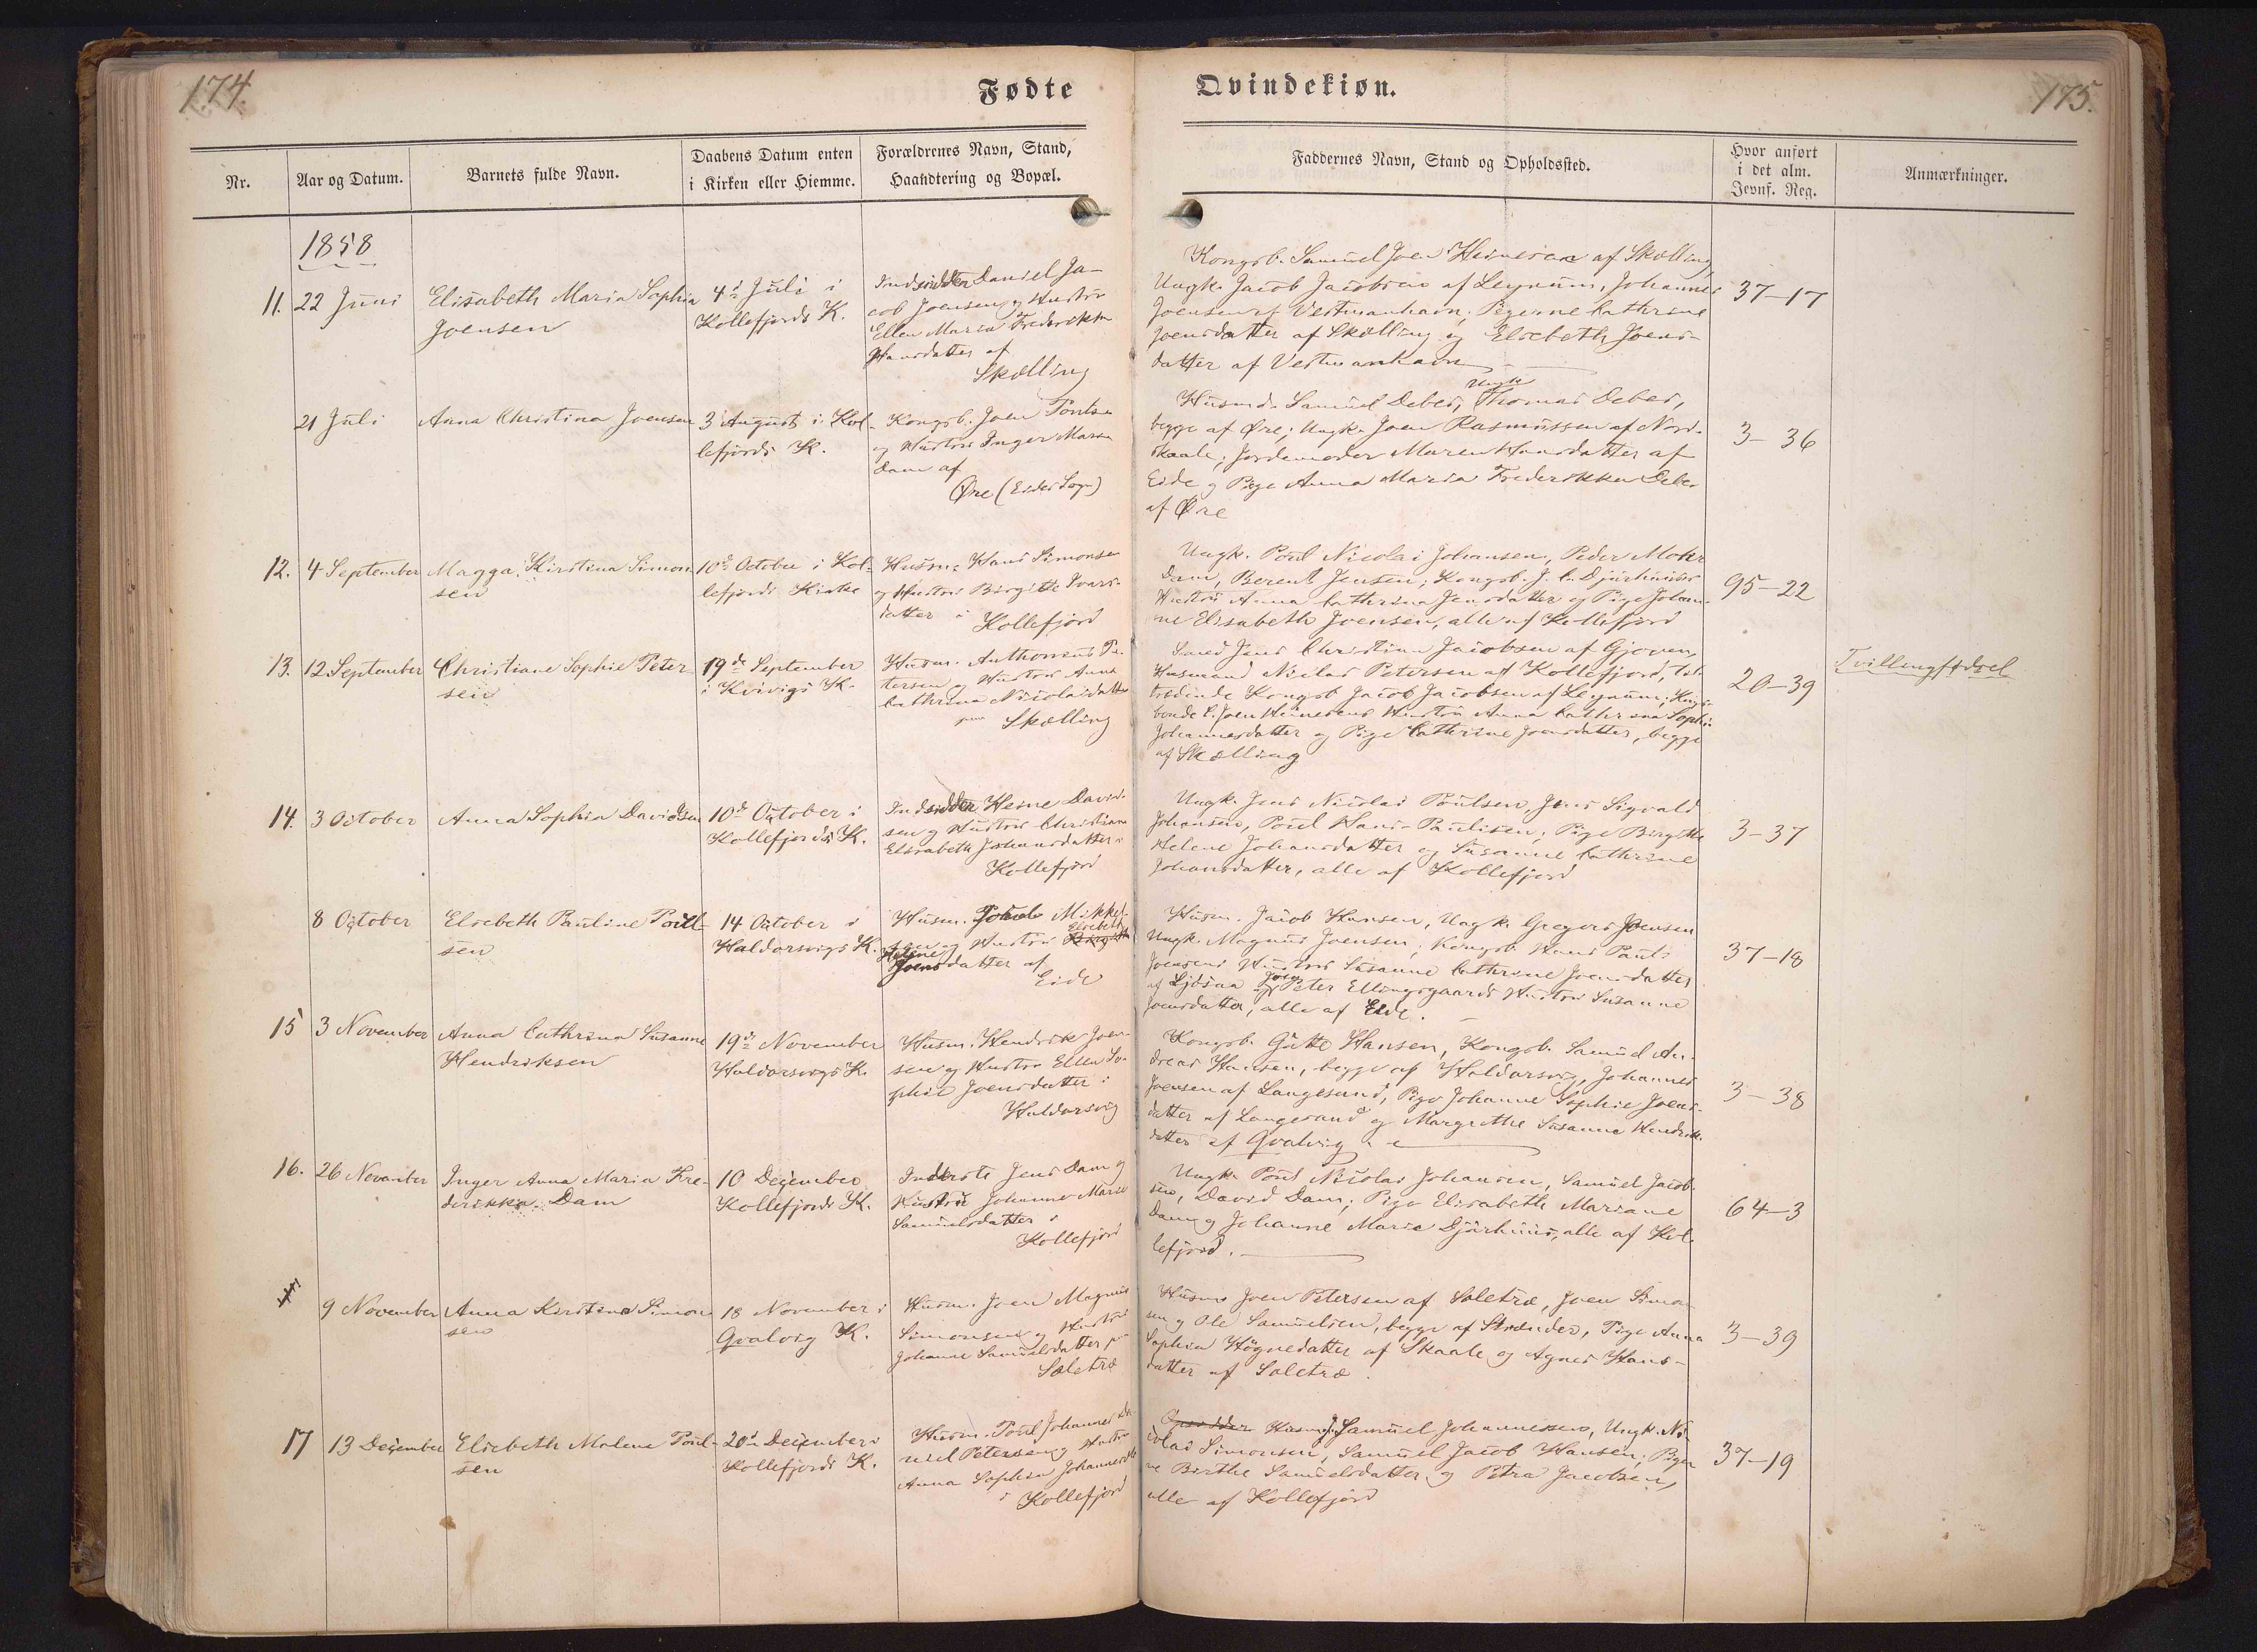 174.
Fødte
Qvindekiøn.
175.
Nr.
Aar og Datum.
Barnets fulde Navn.
Daabens Datum enten
i Kirken eller Hiemme.
Forældrenes Navn, Stand,
Haandtering og Bopæl.
Faddernes Navn, Stand og Opholdssted.
Hvor anført
i det alm.
Jevnf. Reg.
Anmærkninger.
1858
11.
22 Juni
Elisabeth Maria Sophia
Joensen
4de Juli i
Kollefjords K.
Indsidder Daniel Ja-
cob Joensen og Hustru
Ellen Maria Frederikka
Hansdatter af
Skælling
Kongsb. Samuel Joen Heinesen af Skælling
Ungk. Jacob Jacobsen af Leynum, Johannes
Joensen af Vestmanhavn; Pigerne Cathrine
Joensdatter af Skælling og Elsebeth Joens-
datter af Vestmanhavn
37-17
21 Juli
Anna Christina Joensen
3 August i Kol-
lefjords K.
Kongsb. Joen
og Hustru Inger Maria
Dam af
Øre (Eides Sogn)
Husmd. Samuel Debes, Ungk. Thomas Debes,
begge af Øre; Ungk. Joen Rasmussen af Nord-
skaale; Jordemoder Maren Hansdatter af
Eide og Pige Anna Maria Frederikka Debes
af Øre
3-36
12.
4 September
Magga Kirstina Simon-
sen
10de October i Kol-
lefjords Kirke
Husm. Hans Simonsen
og Hustru Birgitte Ivars-
datter i
Kollefjord
Ungk. Poul Nicolai Johansen, Peder Mohr
Dam, Berent Jensen; Kongsb. J. C. Djurhuus's
Hustru Anna Cathrina Jensdatter og Pige Johan-
ne Elisabeth Joensen, alle af Kollefjord
95-22
13.
12 September
Christiane Sophie Peter-
sen
19de September
i Kvivigs K.
Husm. Anthonius Pe-
tersen og Hustru Anna
Cathrina Nicolaidatter
paa Skælling
Smed Jens Christian Jacobsen af Gjoven,
Husmand Niclas Petersen af Kollefjord, til-
trædende Kongsb. Jacob Jacobsen af Leynum; Kongs-
bonde P. Joen Heinesens Hustru Anna Cathrina Sophia
Johannesdatter og Pige Cathrine Joensdatter, begge
af Skælling
20-39
Tvillingfødsel
14.
3 October
Anna Sophia Davidsen
10de October i
Kollefjords K.
Indsidder Heine David-
sen og Hustru Christiane
Elisabeth Johansdatter i
Kollefjord
Ungk. Jens Nicolai Poulsen, Jens Sigvald
Johansen, Poul Hans-Paulisen; Pige Birgitte
Helene Johansdatter og Susanne Cathrine
Johansdatter, alle af Kollefjord
3-37
8 October
Elsebeth Pauline Poul-
sen
14 October i
Haldorsvigs K.
Husm. Mikkel-
sen og Hustru Elsebeth
Helene
Joensdatter af
Eide
Husm. Jacob Hansen, Ungk. Gregers Joensen
Ungk. Magnus Joensen; Kongsb. Hans Pauls
Joensens Hustru Susanne Cathrine Joensdatter
af Ljosaa og Joen Peter Ellingsgaards Hustru Susanne
Joensdatter, alle af Eide.
37-18
15
3 November
Anna Cathrina Susanne
Hendriksen
19de November
Haldorsvigs K.
Husm. Hendrik Joen-
sen og Hustru Ellen So-
phie Joensdatter i
Haldorsvig
Kongsb. Gutte Hansen, Kongsb. Samuel An-
dreas Hansen, begge af Haldorsvig, Johannes
Joensen af Langesand, Pige Johanne Sophie Joens-
datter af Langesand og Margrethe Susanne Hendriks-
datter af Qvalvig
3-38
16.
26 November
Inger Anna Maria Fre-
derikka Dam
10 December
Kollefjords K.
Inderste Jens Dam og
Hustru Johanne Marie
Samuelsdatter i
Kollefjord
Ungk. Poul Nicolai Johansen, Samuel Jacob-
sen, David Dam; Pige Elisabeth Mariane
Dam og Johanne Maria Djurhuus, alle af Kol-
lefjord.
64-3
9 November
Anna Kirstine Simon-
sen
18 November i
Qvalvig K.
Husm. Joen Magnus
Simonsen og Hustru
Johanne Samuelsdatter paa
Saletræ
Husm. Joen Petersen af Saletræ, Joen Simon-
sen og Ole Samuelsen, begge af Strænder, Pige Anna
Sophia Høgnedatter af Skaale og Agnes Hans-
datter af Saletræ.
3-39
17
13 December
Elsebeth Malena Poul-
sen
20de December i
Kollefjords K.
Husm. Poul Johannes Da-
niel Petersen og Hustru
Anna Sophia Johannesdtr
i Kollefjord
Husmd. J. Samuel Johannesen, Ungk. Ni-
colas Simonsen, Samuel Jacob Hansen; Piger-
ne Birthe Samuelsdatter og Petra Jacobsen,
alle af Kollefjord
37-19